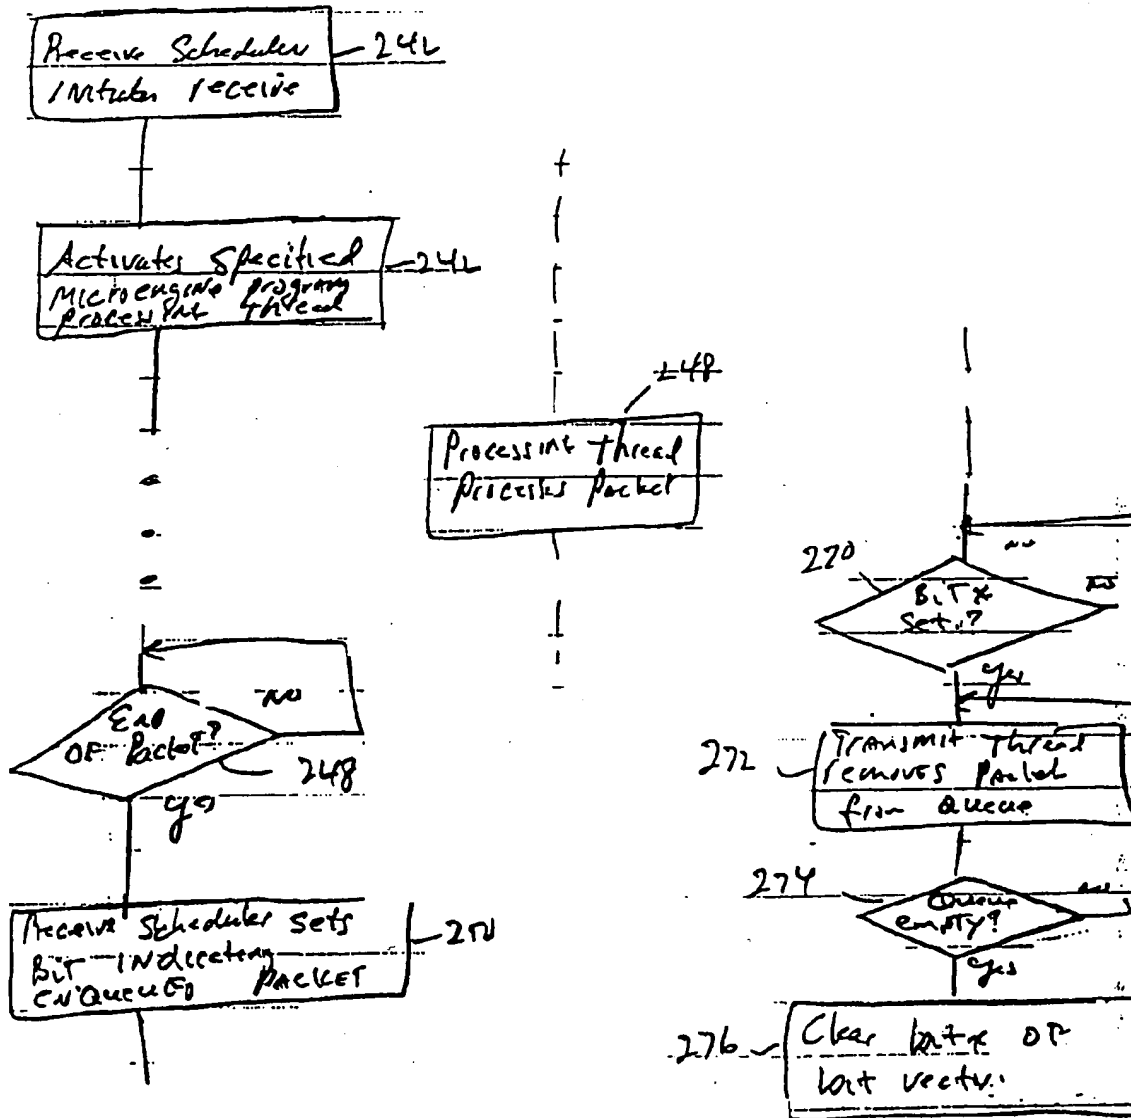 Receive Scheduler
Initiates receive
242
Activates Specified
Microengine program
processing thread
242
248
Processing thread
processes packet
End
OF Packet?
NO
248
yes
Receive Scheduler sets
Bit indicating
ENQUEUED PACKET
250
no
270
Bit x
Set?
NO
yes
272
Transmit thread
removes Packet
from Queue
274
Queue
empty?
no
yes
276
Clear bit x OF
bit vector